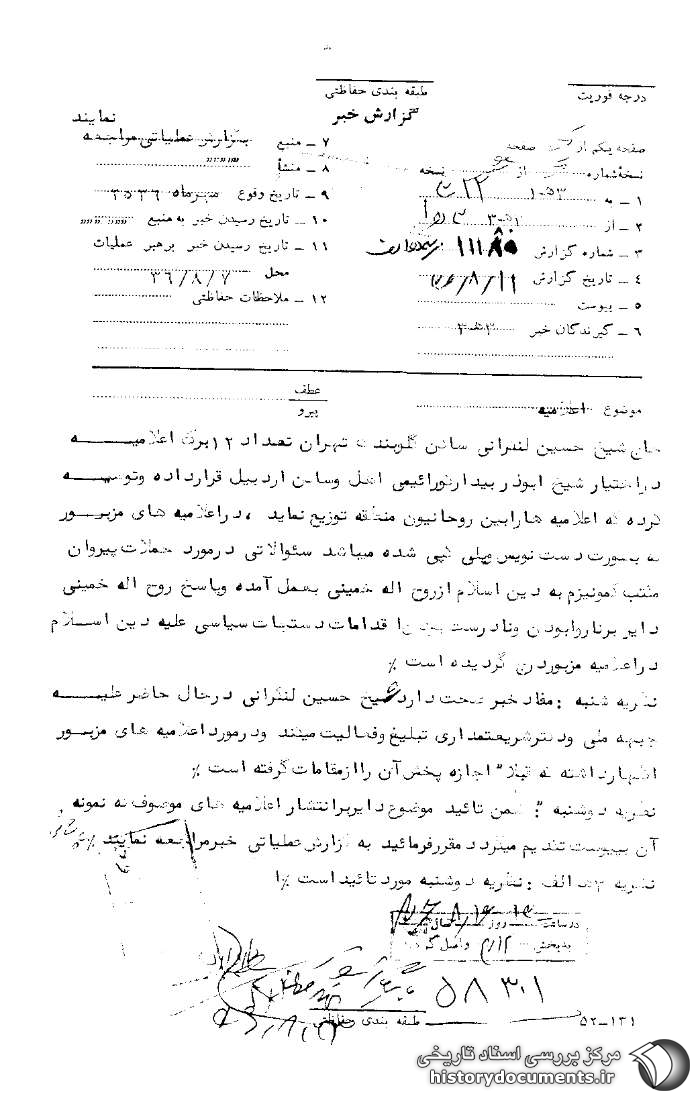 طبقه بندی حفاظتی
درجه فوریت
گزارش خبر
صفحه یکم از صفحه
نسخه شماره از نسخه
۱ ـ به
۲ ـ از
۳ ـ شماره گزارش ۱۱۱۸۵
۴ ـ تاریخ گزارش ۳۶/۸/۱۱
۵ ـ پیوست
۶ ـ گیرندگان خبر
۷ ـ منبع بگزارش عملیاتی مراجعه نمایند
۸ ـ منشأ
۹ ـ تاریخ وقوع مهرماه ۲۵۳۶
۱۰ ـ تاریخ رسیدن خبر به منبع
۱۱ ـ تاریخ رسیدن خبر برهبر عملیات
محل ۳۶/۸/۷
۱۲ ـ ملاحظات حفاظتی
موضوع اعلامیه
عطف
پیرو
حاج شیخ حسین لنکرانی ساکن گلوبندک تهران تعداد ۱۲ برگ اعلامیه
در اختیار شیخ ابوذر بیدار اهل وساکن اردبیل قرارداده وتوصیه
کرده که اعلامیه هارابین روحانیون منطقه توزیع نماید ، دراعلامیه های مزبور
که بصورت دست نویس وپلی کپی شده میباشد سئوالاتی درمورد حملات پیروان
مکتب کمونیزم به دین اسلام ازروح اله خمینی بعمل آمده وپاسخ روح اله خمینی
دایر برناروابودن ونادرست بودن اقدامات دستجات سیاسی علیه دین اسلام
دراعلامیه مزبوردرج گردیده است ٪
نظریه شنبه : مفاد خبر صحت دارد شیخ حسین لنکرانی درحال حاضر علیه
جبهه ملی ودکترشریعتمداری تبلیغ وفعالیت میکند ودرمورد اعلامیه های مزبور
اظهارداشته که قبلا" اجازه پخش آن راازمقامات گرفته است ٪
نظریه دوشنبه : ضمن تائید موضوع دایربرانتشار اعلامیه های موصوف که نمونه
آن بپیوست تقدیم میگردد مقررفرمائید به گزارش عملیاتی خبرمراجعه نمایند ٪
نظریه ۳ هـ الف : نظریه دوشنبه مورد تائید است
در ساعت روز
به بخش ۳۱۲ واصل گردید
۵۸۳۰۱
طبقه بندی حفاظتی
۵۲-۱۳۱
مرکز بررسی اسناد تاریخی
historydocuments.ir